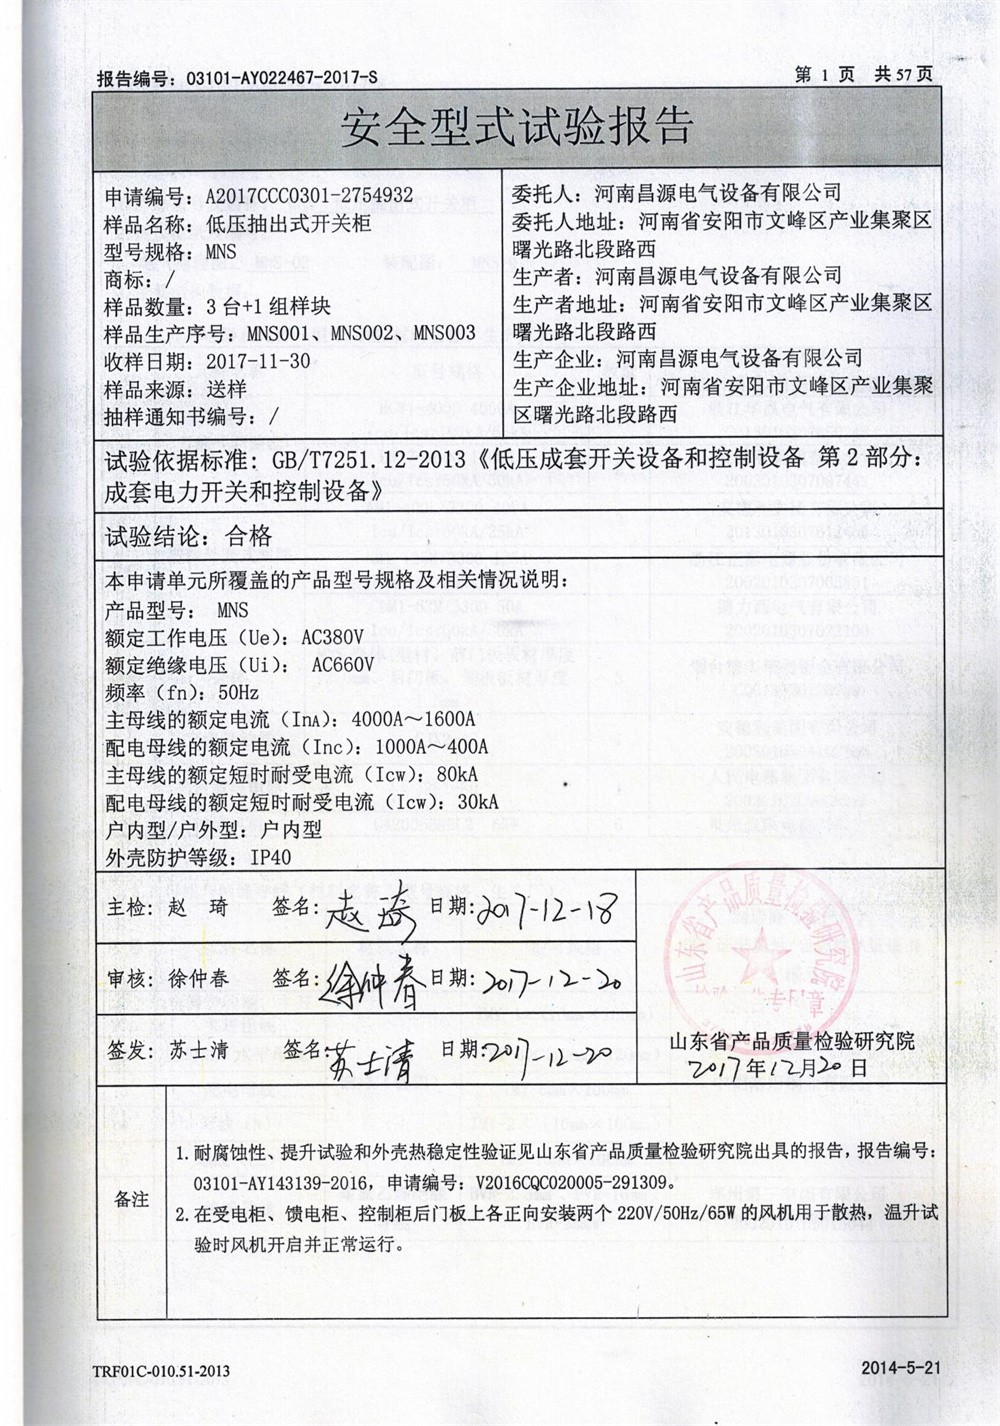 报告编号：03101-AY022467-2017-S
第 1 页 共 57 页
安全型式试验报告
申请编号：A2017CCC0301-2754932
样品名称：低压抽出式开关柜
型号规格：MNS
商标：/
样品数量：3 台+1 组样块
样品生产序号：MNS001、MNS002、MNS003
收样日期：2017-11-30
样品来源：送样
抽样通知书编号：/
委托人：河南昌源电气设备有限公司
委托人地址：河南省安阳市文峰区产业集聚区
曙光路北段路西
生产者：河南昌源电气设备有限公司
生产者地址：河南省安阳市文峰区产业集聚区
曙光路北段路西
生产企业：河南昌源电气设备有限公司
生产企业地址：河南省安阳市文峰区产业集聚
区曙光路北段路西
试验依据标准：GB/T7251.12-2013《低压成套开关设备和控制设备 第 2 部分：
成套电力开关和控制设备》
试验结论：合格
本申请单元所覆盖的产品型号规格及相关情况说明：
产品型号： MNS
额定工作电压（Ue）：AC380V
额定绝缘电压（Ui）： AC660V
频率（fn）：50Hz
主母线的额定电流（InA）：4000A～1600A
配电母线的额定电流（Inc）：1000A～400A
主母线的额定短时耐受电流（Icw）：80kA
配电母线的额定短时耐受电流（Icw）：30kA
户内型/户外型：户内型
外壳防护等级：IP40
主检：赵 琦 签名：赵琦 日期：2017-12-18
审核：徐仲春 签名：徐仲春 日期：2017-12-20
签发：苏士清 签名：苏士清 日期：2017-12-20
山东省产品质量检验研究院
山东省产品质量检验研究院
2017年12月20日
备注
1. 耐腐蚀性、提升试验和外壳热稳定性验证见山东省产品质量检验研究院出具的报告，报告编号：
03101-AY143139-2016，申请编号：V2016CQC020005-291309。
2. 在受电柜、馈电柜、控制柜后门板上各正向安装两个 220V/50Hz/65W 的风机用于散热，温升试
验时风机开启并正常运行。
TRF01C-010.51-2013
2014-5-21